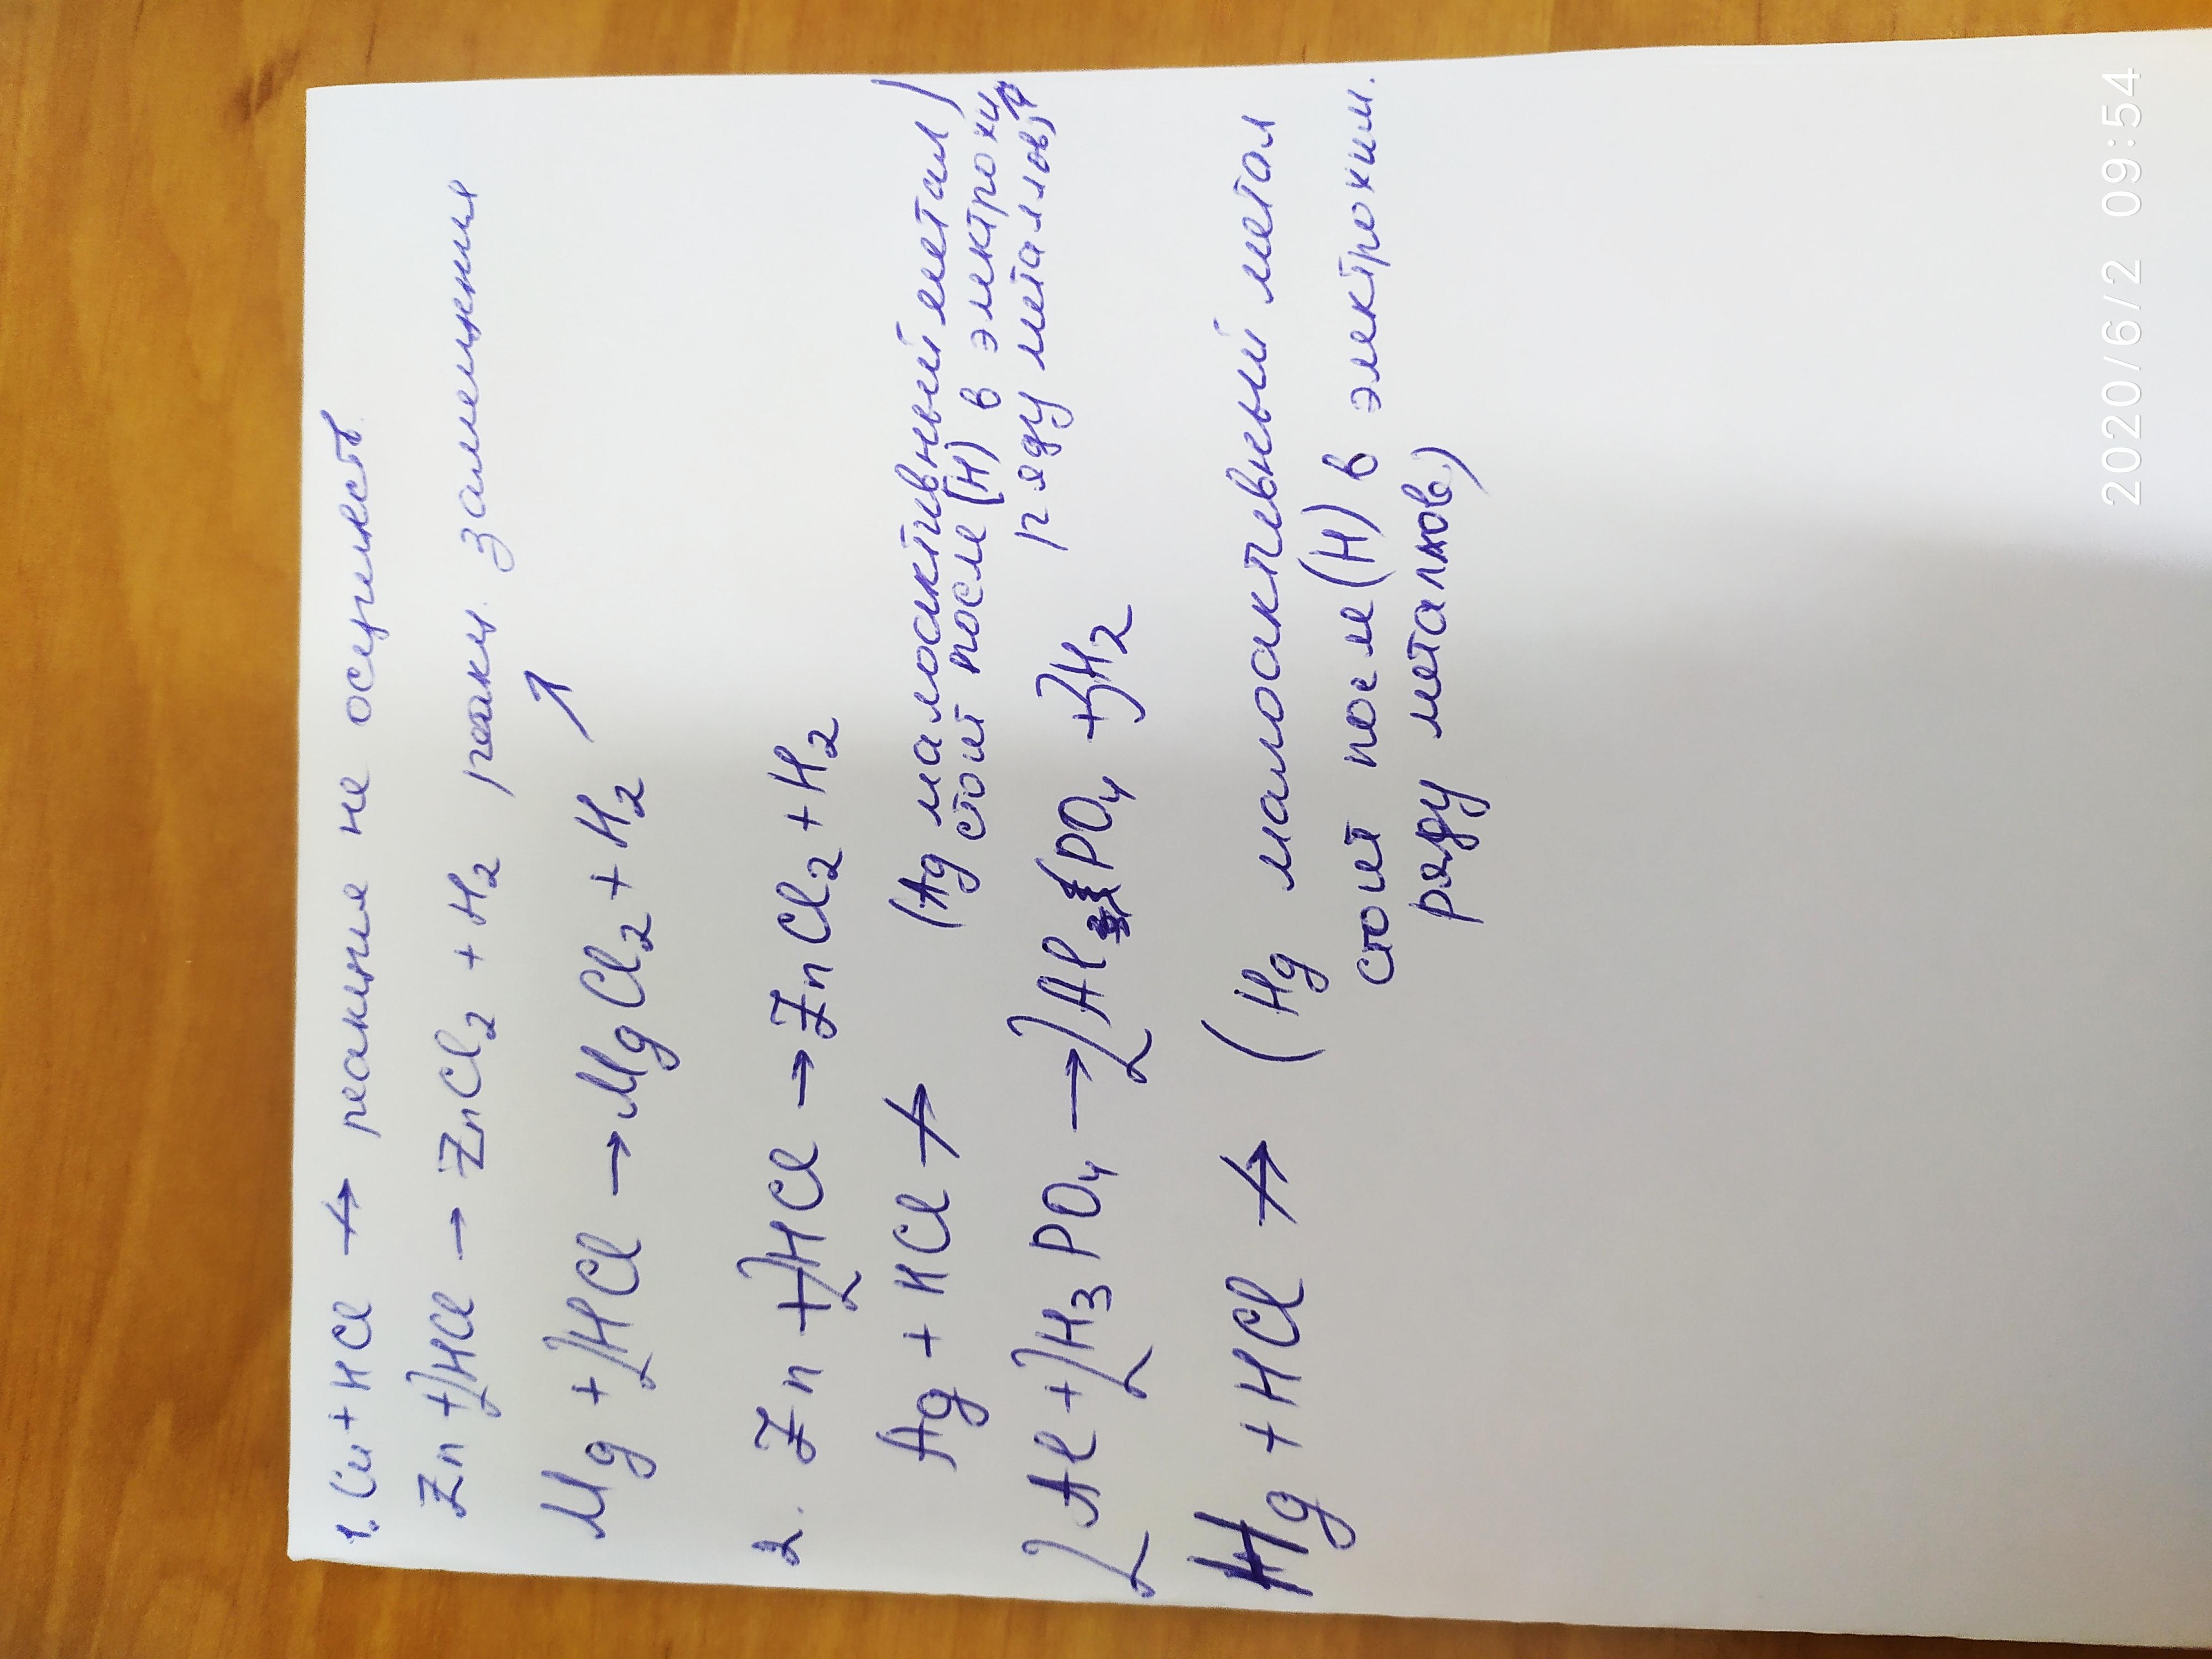 1. Cu + HCl ↛ реакция не осуществ.
Zn + 2HCl → ZnCl₂ + H₂ реакц. замещения
Mg + 2HCl → MgCl₂ + H₂ ↗
2. Zn + 2HCl → ZnCl₂ + H₂
Ag + HCl ↛ (Ag малоактивный метал)
стоит после (H) в электрохим
ряду металлов)
2Al + 2H₃PO₄ → 2AlPO₄ + 3H₂
Hg + HCl ↛ (Hg малоактивный метал
стоит после (H) в электрохим.
ряду металлов)
2020/6/2 09:54